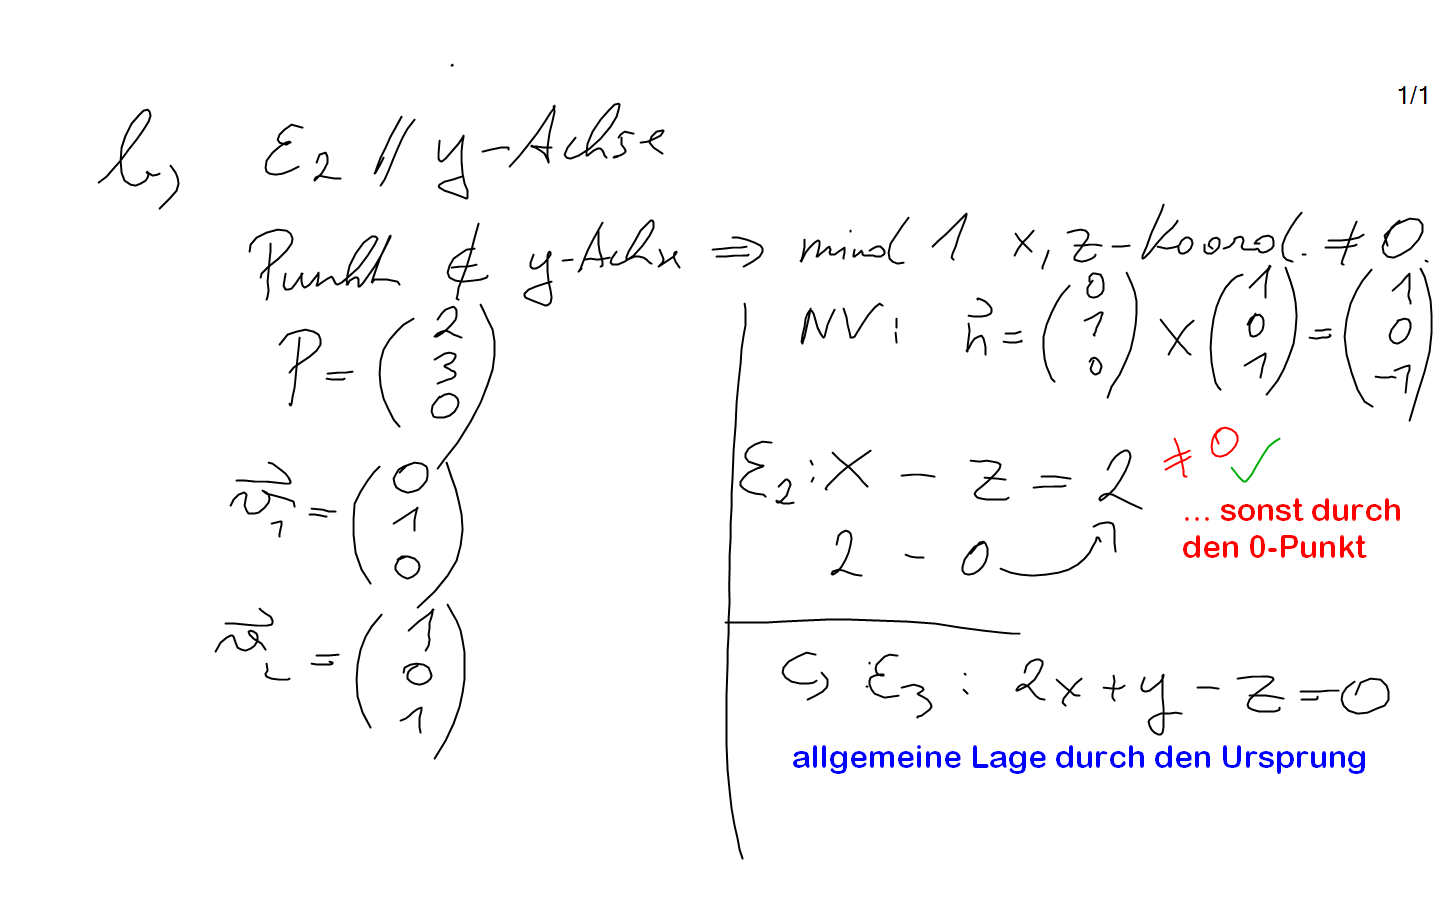 1/1
b) E₂ // y-Achse
Punkt ∉ y-Achse ⇒ mind 1 x, z-Koord. ≠ 0.
P = (2 3 0)
v⃗₁ = (0 1 0)
v⃗₂ = (1 0 1)
NV: n⃗ = (0 1 0) × (1 0 1) = (1 0 -1)
E₂: x - z = 2 ≠ 0 ✓
... sonst durch
den 0-Punkt
2 - 0
c) E₃ : 2x + y - z = 0
allgemeine Lage durch den Ursprung